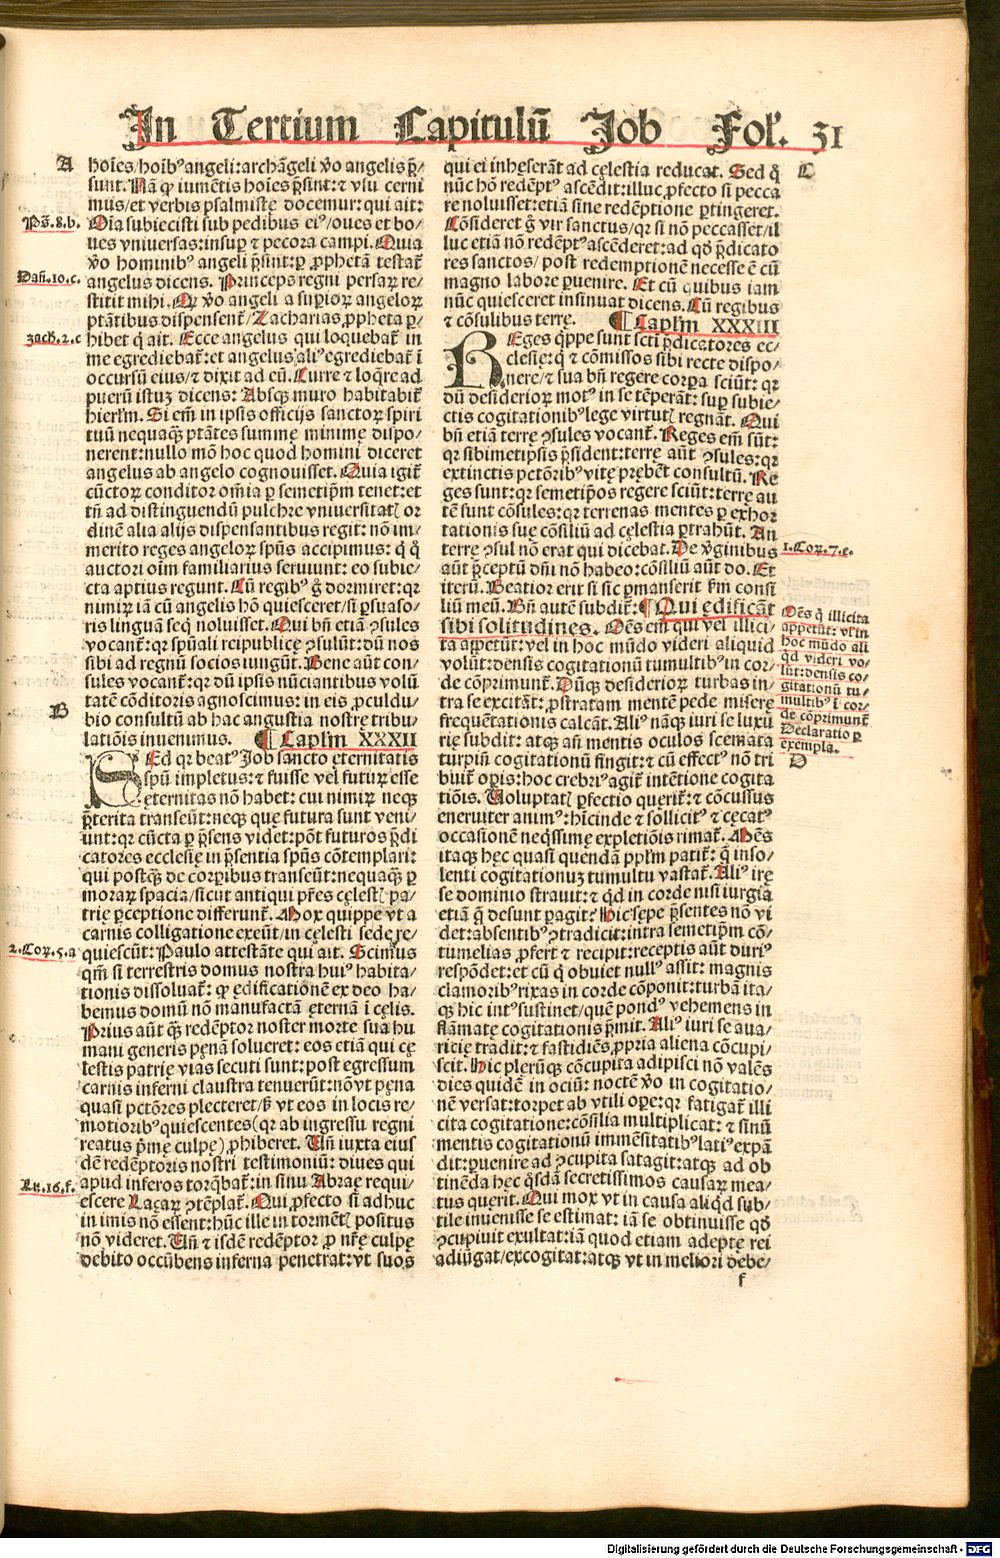 In Tertium Capitulū Job Fol'. 31
A
hoīes/hoībꝰ angeli: archāgeli v̄o angelis p̄-
sunt. Nā ꝙ iumētis hoīes p̄sint: ⁊ vsu cerni
mus/et verbis psalmistę docemur: qui ait:
Ps̄. 8. b.
Oīa subiecisti sub pedibus eiꝰ/oues et bo-
ues vniuersas: insuꝑ ⁊ pecora campi. Quia
v̄o hominibꝰ angeli p̄sint: ꝑ ꝓphetā testat᷑
Dan̄. 10. c.
angelus dicens. Princeps regni persaꝝ re-
stitit mihi. Qꝛ v̄o angeli a suꝑioꝝ angeloꝝ
ptātibus dispensent᷑/Zacharias ꝓpheta ꝑ-
zach. 2. c
hibet q̇ ait. Ecce angelus qui loquebat᷑ in
me egrediebat᷑: et angelus aliꝰ egrediebat᷑ ī
occursū eius/⁊ dixit ad eū. Curre ⁊ loq̄re ad
puerū istuꝫ dicens: Absqꝫ muro habitabit᷑
hierl̄m. Si em̄ in ipsis officijs sanctoꝝ spiri
tuū nequaqꝫ ptātes summę minimę dispo-
nerent: nullo mō hoc quod homini diceret
angelus ab angelo cognouisset. Quia igit᷑
cūctoꝝ conditor om̄ia ꝑ semetip̄m tenet: et
tn̄ ad distinguendū pulchre vniuersitatꝭ or
dinē alia alijs dispensantibus regit: nō im-
merito reges angeloꝝ sp̄us accipimus: q̇ q̇
auctori oīm familiarius seruiunt: eo subie-
cta aptius regunt. Cū regibꝰ g̊ dormiret: qꝛ
nimiꝝ iā cū angelis hō quiesceret/si ꝑsuaso-
ris linguā seq̇ noluisset. Qui bn̄ etiā ↄsules
vocant᷑: qꝛ spūali reipublicę ↄsulūt: dū nos
sibi ad regnū socios iungūt. Bene aūt con-
sules vocant᷑: qꝛ dū ipsis nūciantibus volū
tatē cōditoris agnoscimus: in eis ꝓculdu-
B
bio consultū ab hac angustia nostrę tribu-
latiōis inuenimus. ¶ Capl̄m XXXII
SEd qꝛ beatꝰ Job sancto ęternitatis
spū impletus: ⁊ fuisse vel futuꝝ esse
ęternitas nō habet: cui nimiꝝ neqꝫ
p̄terita transeūt: neqꝫ que futura sunt veni-
unt: qꝛ cūcta ꝑ p̄sens videt: pōt futuros p̄di
catores ecclesię in p̄sentia sp̄us cōtemplari:
qui postqꝫ de corꝑibus transeūt: nequaqꝫ ꝑ
moraꝝ spacia/sicut antiqui pr̄es cęlestꝭ pa-
trię ꝑceptione differunt᷑. Mox quippe vt a
carnis colligatione exeūt/in cęlesti sede re-
2. Coꝝ. 5. a
quiescūt: Paulo attestāte qui ait. Scimus
qm̄ si terrestris domus nostra huiꝰ habita-
tionis dissoluat᷑: ꝙ ędificationē ex deo ha-
bemus domū nō manufactā ęternā ī cęlis.
Prius aūt qꝫ redēptor noster morte sua hu
mani generis pęnā solueret: eos etiā qui cę
lestis patrię vias secuti sunt: post egressum
carnis inferni claustra tenuerūt: nō vt pęna
quasi pctōres plecteret/ß vt eos in locis re-
motioribꝰ quiescentes (qꝛ ab ingressu regni
reatus p̄mę culpę) ꝓhiberet. Un̄ iuxta eius
dē redēptoris nostri testimoniū: diues qui
Lu. 16. f.
apud inferos torq̄bat᷑: in sinu Abraę requi-
escere Laçaꝝ ↄtēplat᷑. Qui ꝓfecto si adhuc
in imis nō essent: hūc ille in tormētꝭ positus
nō videret. Un̄ ⁊ isdē redēptor ꝓ nr̄ę culpę
debito occūbens inferna penetrat: vt suos
C
qui ei inhęserāt ad cęlestia reducat. Sed q̊
nūc hō redēptꝰ ascēdit: illuc ꝓfecto si pecca
re noluisset: etiā sine redēptione ꝑtingeret.
Cōsideret g̊ vir sanctus/qꝛ si nō peccasset/il
luc etiā nō redēptꝰ ascēderet: ad qd̊ p̄dicato
res sanctos/post redemptionē necesse ē cū
magno labore ꝑuenire. Et cū quibus iam
nūc quiesceret insinuat dicens. Cū regibus
⁊ cōsulibus terrę. ¶ Capl̄m XXXIII
REges q̇ppe sunt scti p̄dicatores ec-
clesię: q̇ ⁊ cōmissos sibi recte dispo-
nere/⁊ sua bn̄ regere corꝑa sciūt: qꝛ
dū desiderioꝝ motꝰ in se tēperāt: suꝑ subie-
ctis cogitationibꝰ lege virtutꝭ regnāt. Qui
bn̄ etiā terrę ↄsules vocant᷑. Reges em̄ sūt:
qꝛ sibimetipsis p̄sident: terrę aūt ↄsules: qꝛ
extinctis pctōribꝰ vitę prębēt consultū. Re
ges sunt: qꝛ semetip̄os regere sciūt: terrę au
tē sunt cōsules: qꝛ terrenas mentes ꝑ exhor
tationis suę cōsiliū ad cęlestia ꝑtrahūt. An
terrę ↄsul nō erat qui dicebat. De v̄ginibus
1. Coꝝ. 7. e.
aūt p̄ceptū dn̄i nō habeo: cōsiliū aūt do. Et
iterū. Beatior erit si sic ꝑmanserit ẜm consi
liū meū. Bn̄ autē subdit᷑: ¶ Qui ędificāt
sibi solitudines. Oēs em̄ qui vel illici-
ta appetūt: vel in hoc mūdo videri aliquid
volūt: densis cogitationū tumultibꝰ in cor-
de cōprimunt᷑. Dūqꝫ desiderioꝝ turbas in-
tra se excitāt: ꝓstratam mentē pede miserę
frequētationis calcāt. Aliꝰ nāqꝫ iuri se luxu
rię subdit: atqꝫ an̄ mentis oculos scemata
turpiū cogitationū fingit: ⁊ cū effectꝰ nō tri
buit᷑ oꝑis: hoc crebriꝰ agit᷑ intētione cogita
tiōis. Uoluptatꝭ ꝑfectio querit᷑: ⁊ cōcussus
eneruiter animꝰ: hīcinde ⁊ sollicitꝰ ⁊ cęcatꝰ
occasionē neq̇ssimę expletiōis rimat᷑. Mēs
itaqꝫ hęc quasi quendā ppl̄m patit᷑: q̄ inso-
lenti cogitationuꝫ tumultu vastat᷑. Aliꝰ irę
se dominio strauit: ⁊ q̇d in corde nisi iurgia
etiā q̄ desunt ꝑagit? Hic sępe p̄sentes nō vi
det: absentibꝰ ↄtradicit: intra semetip̄m cō-
tumelias ꝓfert ⁊ recipit: receptis aūt duriꝰ
respōdet: et cū q̇ obuiet nullꝰ assit: magnis
clamoribꝰ rixas in corde cōponit: turbā ita-
qꝫ hic intꝰ sustinet/quē pondꝰ vehemens in
flāmatę cogitationis p̄mit. Aliꝰ iuri se aua-
ricię tradit: ⁊ fastidiēs ꝓpria aliena cōcupi-
scit. Hic plerūqꝫ cōcupita adipisci nō valēs
dies quidē in ociū: noctē v̄o in cogitatio-
nē versat: torpet ab vtili oꝑe: qꝛ fatigat᷑ illi
cita cogitatione: cōsilia multiplicat: ⁊ sinū
mentis cogitationū immēsitatibꝰ latiꝰ expā
dit: ꝑuenire ad ↄcupita satagit: atqꝫ ad ob
tinēda hęc q̇sdā secretissimos causaꝝ mea-
tus querit. Qui mox vt in causa aliq̇d sub-
tile inuenisse se estimat: iā se obtinuisse qd̊
ↄcupiuit exultat: iā quod etiam adeptę rei
adiūgat/excogitat: atqꝫ vt in meliori debe-
Oēs q̇ illicita
appetūt: vl̓ in
hoc mūdo ali
q̇d videri vo-
lūt: densis co-
gitationū tu-
multibꝰ ī cor-
de cōprimunt᷑
Declaratio ꝑ
exempla.
D
f
Digitalisierung gefördert durch die Deutsche Forschungsgemeinschaft - DFG